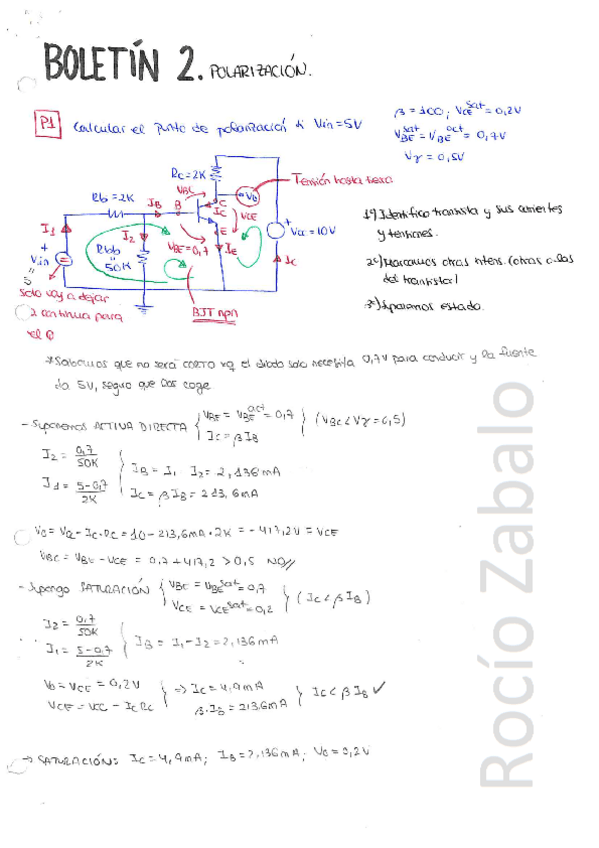 BOLETÍN 2. POLARIZACIÓN.
P1 Calcular el punto de polarización si Vin = 5V
β = 100; VCE^sat = 0,2V
VBE^sat = VBE^act = 0,7V
Vγ = 0,5V
Rc = 2K
Tensión hasta tierra
Rb = 2K
IB
B
VBC
C
Ic
VCE
Vo
I1
I2
Rbb = 50K
VBE = 0,7
E
IE
+ Vcc = 10V
Ic
+ Vin = 5
BJT npn
solo voy a dejar
continua para
el Q
1º) Identifico transisto y sus corrientes
y tensiones.
2º) Marcamos otras intens. (otras a las
del transisto)
3º) Suponemos estado.
*Sabemos que no será CORTE xq el diodo solo necesita 0,7V para conducir y la fuente
da 5V, seguro que los coge
- Suponemos ACTIVA DIRECTA { VBE = VBE^act = 0,7 } (VBC < Vγ = 0,5)
IC = βIB
I2 = 0,7/50K
I1 = 5-0,7/2K
IB = I1 I2 = 2,136mA
IC = βIB = 213,6mA
Vo = Vcc - Ic·Rc = 10 - 213,6mA·2K = -417,2V = VCE
VBC = VBE - VCE = 0,7 + 417,2 > 0,5 NO//
- Supongo SATURACIÓN { VBE = VBE^sat = 0,7 } (IC < βIB)
VCE = VCE^sat = 0,2
I2 = 0,7/50K
I1 = 5-0,7/2K
IB = I1 - I2 = 2,136mA
Vo = VCE = 0,2V
VCE = VCC - ICRC
=> IC = 4,9mA
β·IB = 213,6mA
IC < βIB ✓
-> SATURACIÓN: IC = 4,9mA; IB = 2,136mA; Vo = 0,2V
Rocío Zabalo